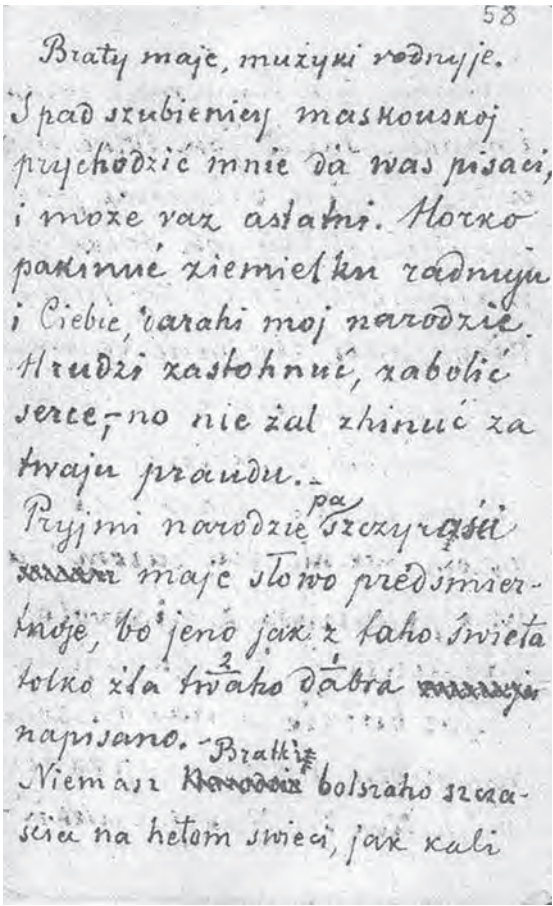 58
Braty maje, mużyki rodnyje.
S pad szubienicy maskouskoj
prychodzić mnie da was pisaci,
i może raz astatni. Horko
pakinuć ziemielku radnuju
i Ciebie, darahi moj narodzie.
Hrudzi zastohnuć, zabolić
serce, – no nie żal zhinuć za
twaju praudu. –
Pryjmi narodzie pa szczyrości
maje słowo predśmier-
tnoje, bo jeno jak z taho świeta
tolko dla twaho 2 dabra 1
napisano.
Niemasz Bratki bolszaho szcza-
ścia na hetom świeci, jak kali